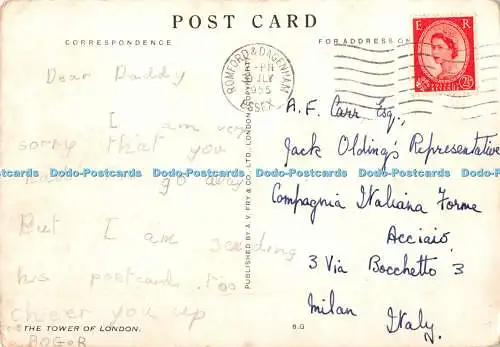 POST CARD
CORRESPONDENCE
FOR ADDRESS ON
E R
2½
ROMFORD & DAGENHAM
-PM
JLY
1955
ESSEX
Dear Daddy
I am very
sorry that you
go away
But I am sending
his postcard too
cheer you up
ROGOR
THE TOWER OF LONDON.
B.G
PUBLISHED BY A. V. FRY & CO., LTD., LONDON. COPYRIGHT
A. F. Carr, Esq.,
Jack Olding's Representative
Compagnia Italiana Forme
Acciaio
3 Via Bocchetto 3
Milan
Italy.
Dodo-Postcards Dodo-Postcards Dodo-Postcards Dodo-Postcards Dodo-Postcards Dodo-Postcards